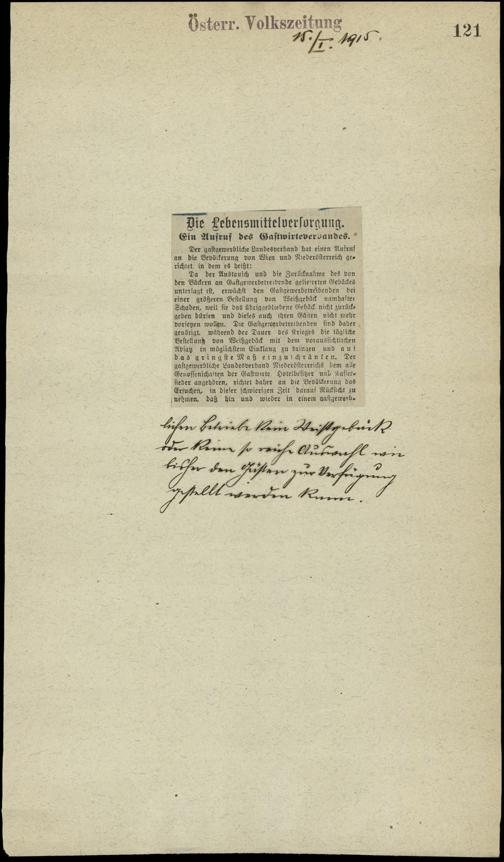 Österr. Volkszeitung
15./I. 1915.
121
Die Lebensmittelversorgung.
Ein Aufruf des Gastwirteverbandes.
Der gastgewerbliche Landesverband hat einen Aufruf
an die Bevölkerung von Wien und Niederösterreich ge-
richtet in dem es heißt:
Da der Austausch und die Zurücknahme des von
den Bäckern an Gastgewerbetreibende gelieferten Gebäckes
untersagt ist, erwächst den Gastgewerbetreibenden bei
einer größeren Bestellung von Weißgebäck namhafter
Schaden, weil sie das übriggebliebene Gebäck nicht zurück-
geben dürfen und dieses auch ihren Gästen nicht mehr
vorlegen wollen. Die Gastgewerbetreibenden sind daher
genötigt, während der Dauer des Krieges die tägliche
Bestellung von Weißgebäck mit dem voraussichtlichen
Absatz in möglichsten Einklang zu bringen und auf
das gringste Maß einzuschränken. Der
gastgewerbliche Landesverband Niederösterreichs dem alle
Genossenschaften der Gastwirte, Hotelbesitzer und Kaffee-
sieder angehören, richtet daher an die Bevölkerung das
Ersuchen, in dieser schwierigen Zeit darauf Rücksicht zu
nehmen, daß hin und wieder in einem gastgewerb-
lichen Betriebe kein Weißgebäck
oder keine so reiche Auswahl wie
bisher den Gästen zur Verfügung
gestellt werden kann.